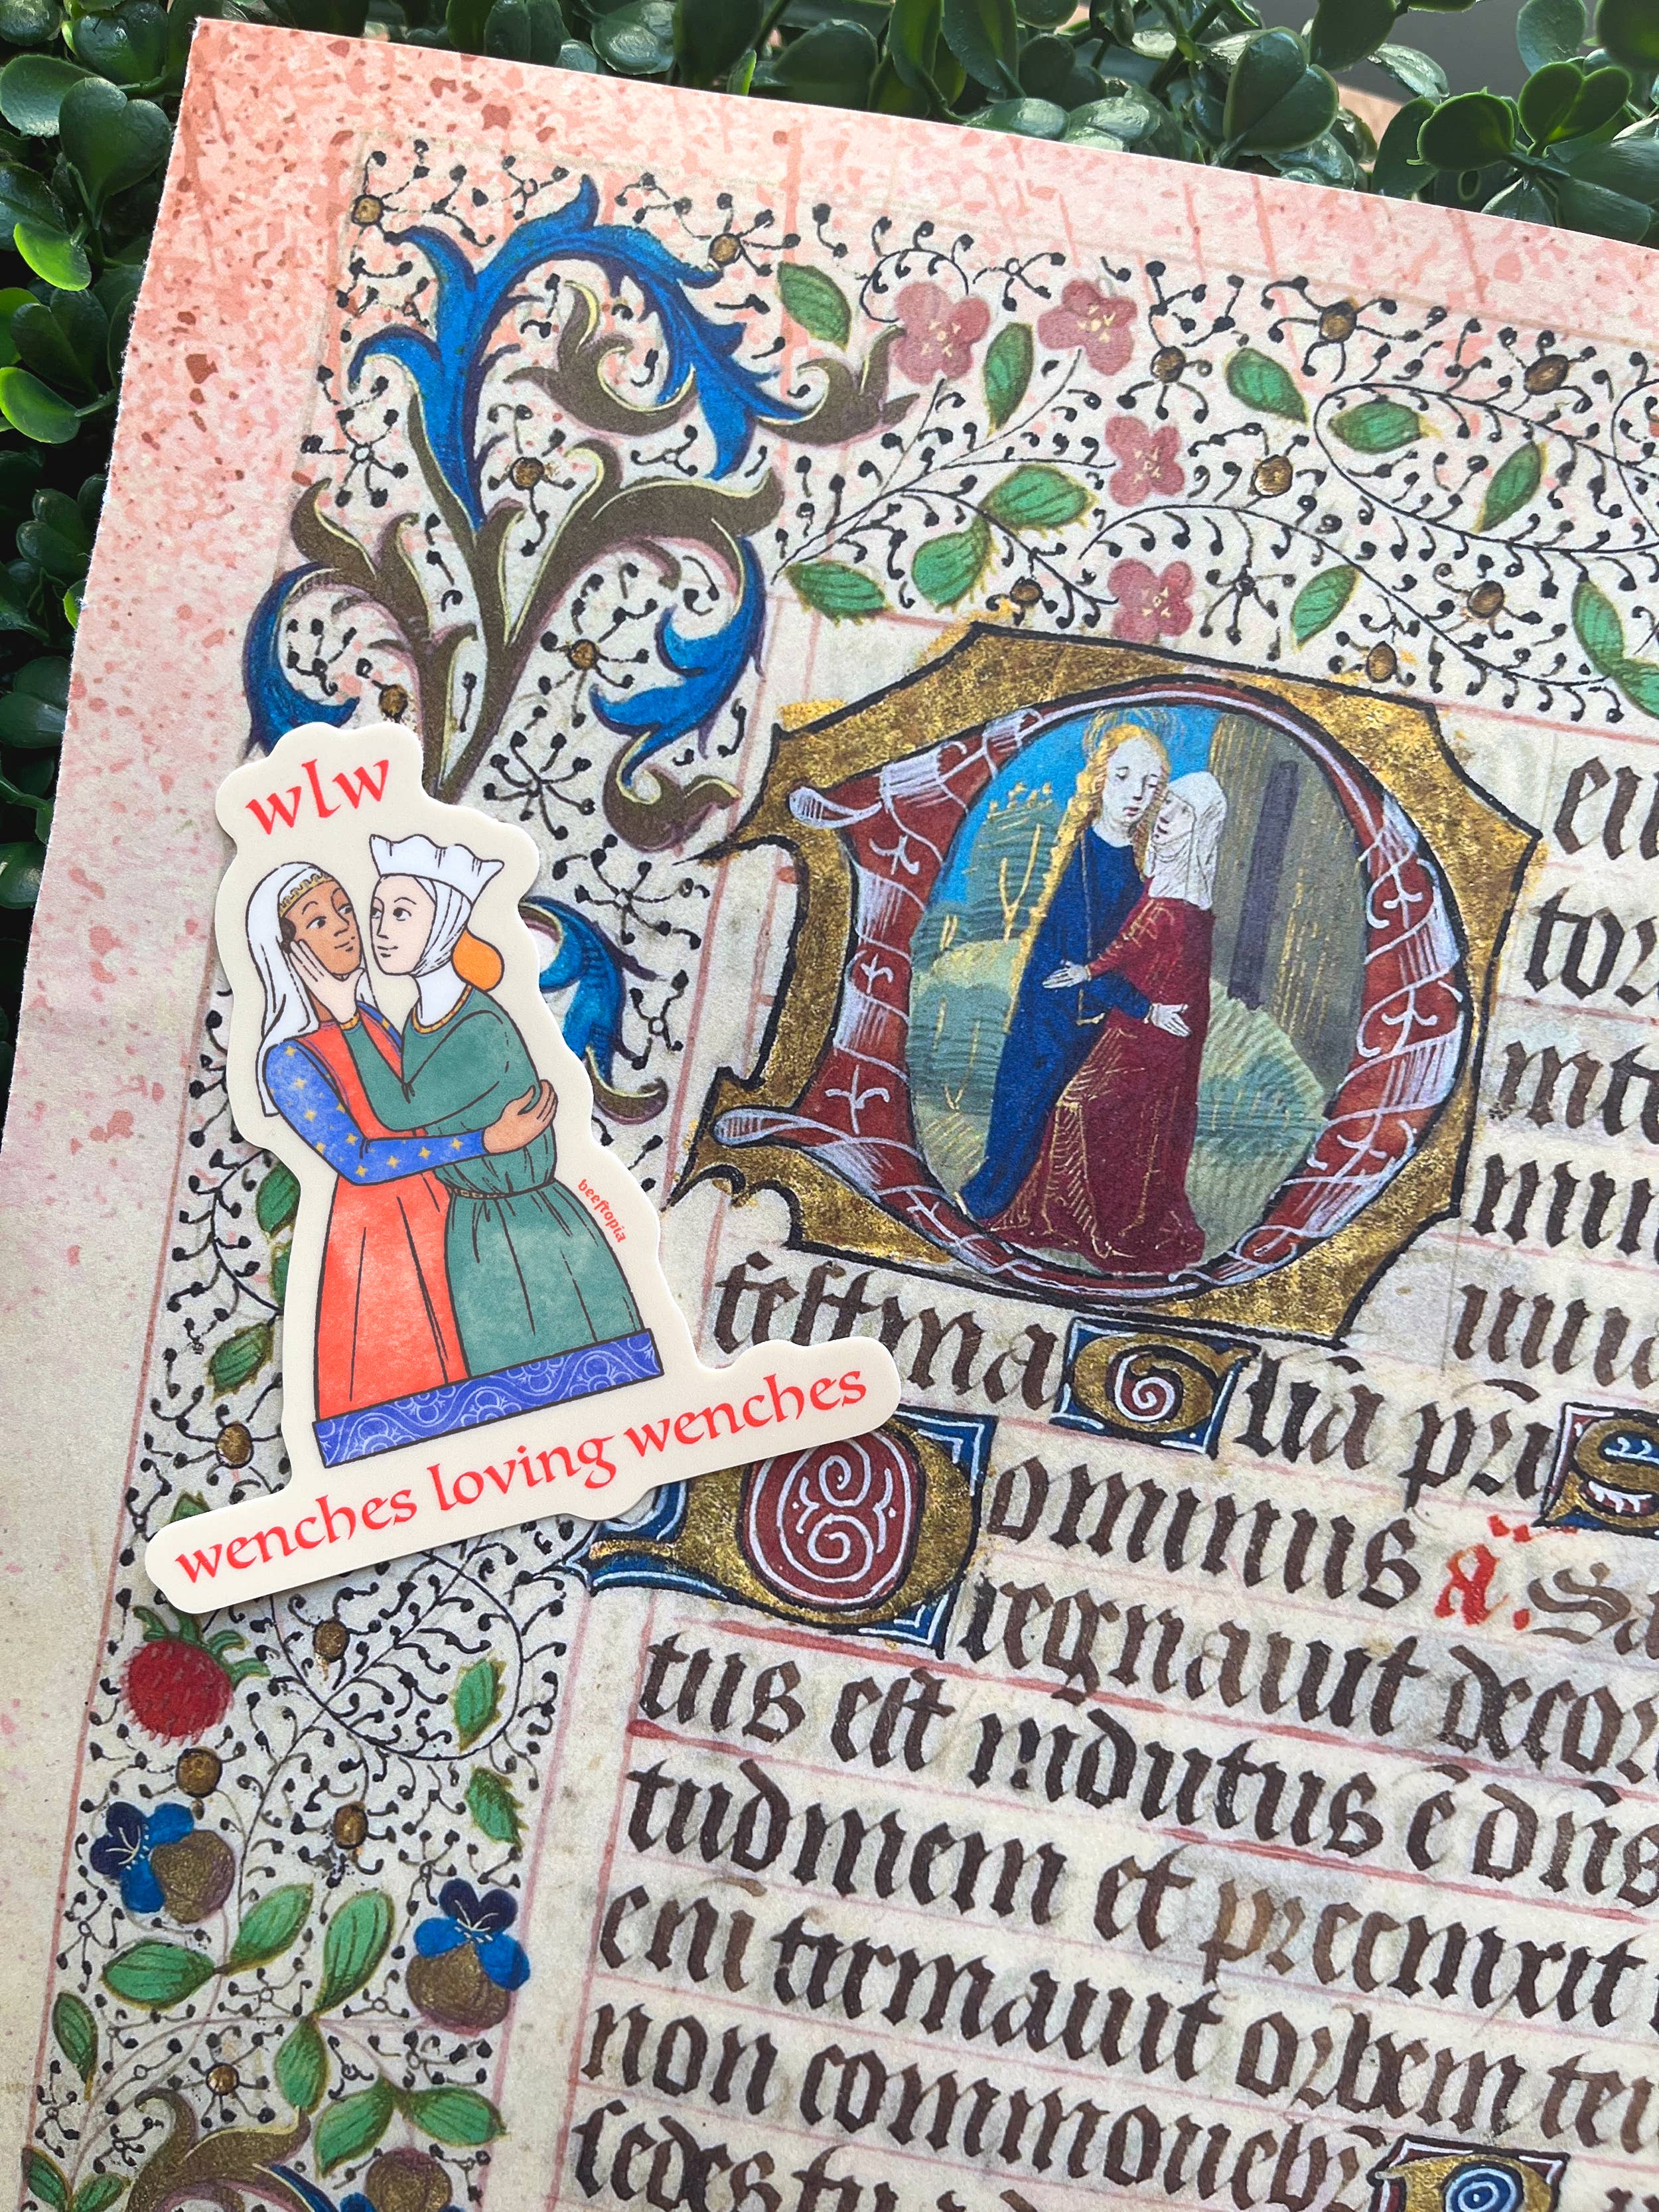 wlw
beeftopia
wenches loving wenches
festina Glia pri S
Dominus A. Sa
regnauit decor
tus est indutus ē dñs
tudinem et precinxit
eni firmauit orbem ter
non commouebit
sedes tu